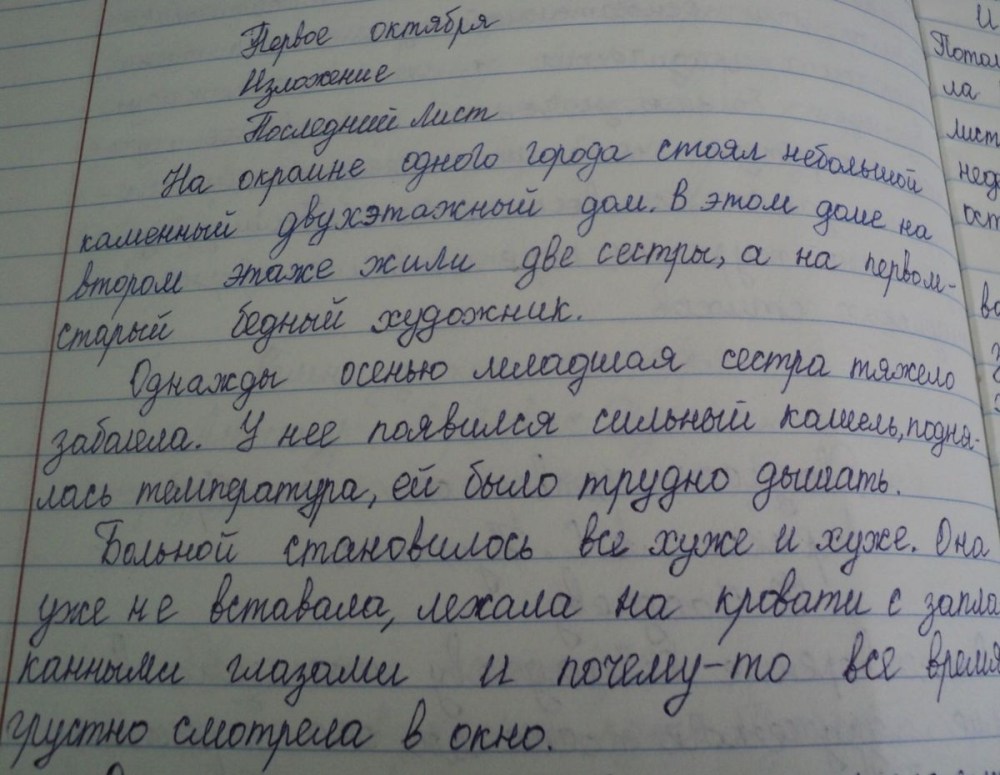 Первое октября
Изложение
Последний лист
На окраине одного города стоял небольшой
каменный двухэтажный дом. В этом доме на
втором этаже жили две сестры, а на первом-
старый бедный художник.
Однажды осенью младшая сестра тяжело
заболела. У нее появился сильный кашель, подня-
лась температура, ей было трудно дышать.
Больной становилось все хуже и хуже. Она
уже не вставала, лежала на кровати с запла
канными глазами и почему-то все время
грустно смотрела в окно.
И
Потом
ла
лист